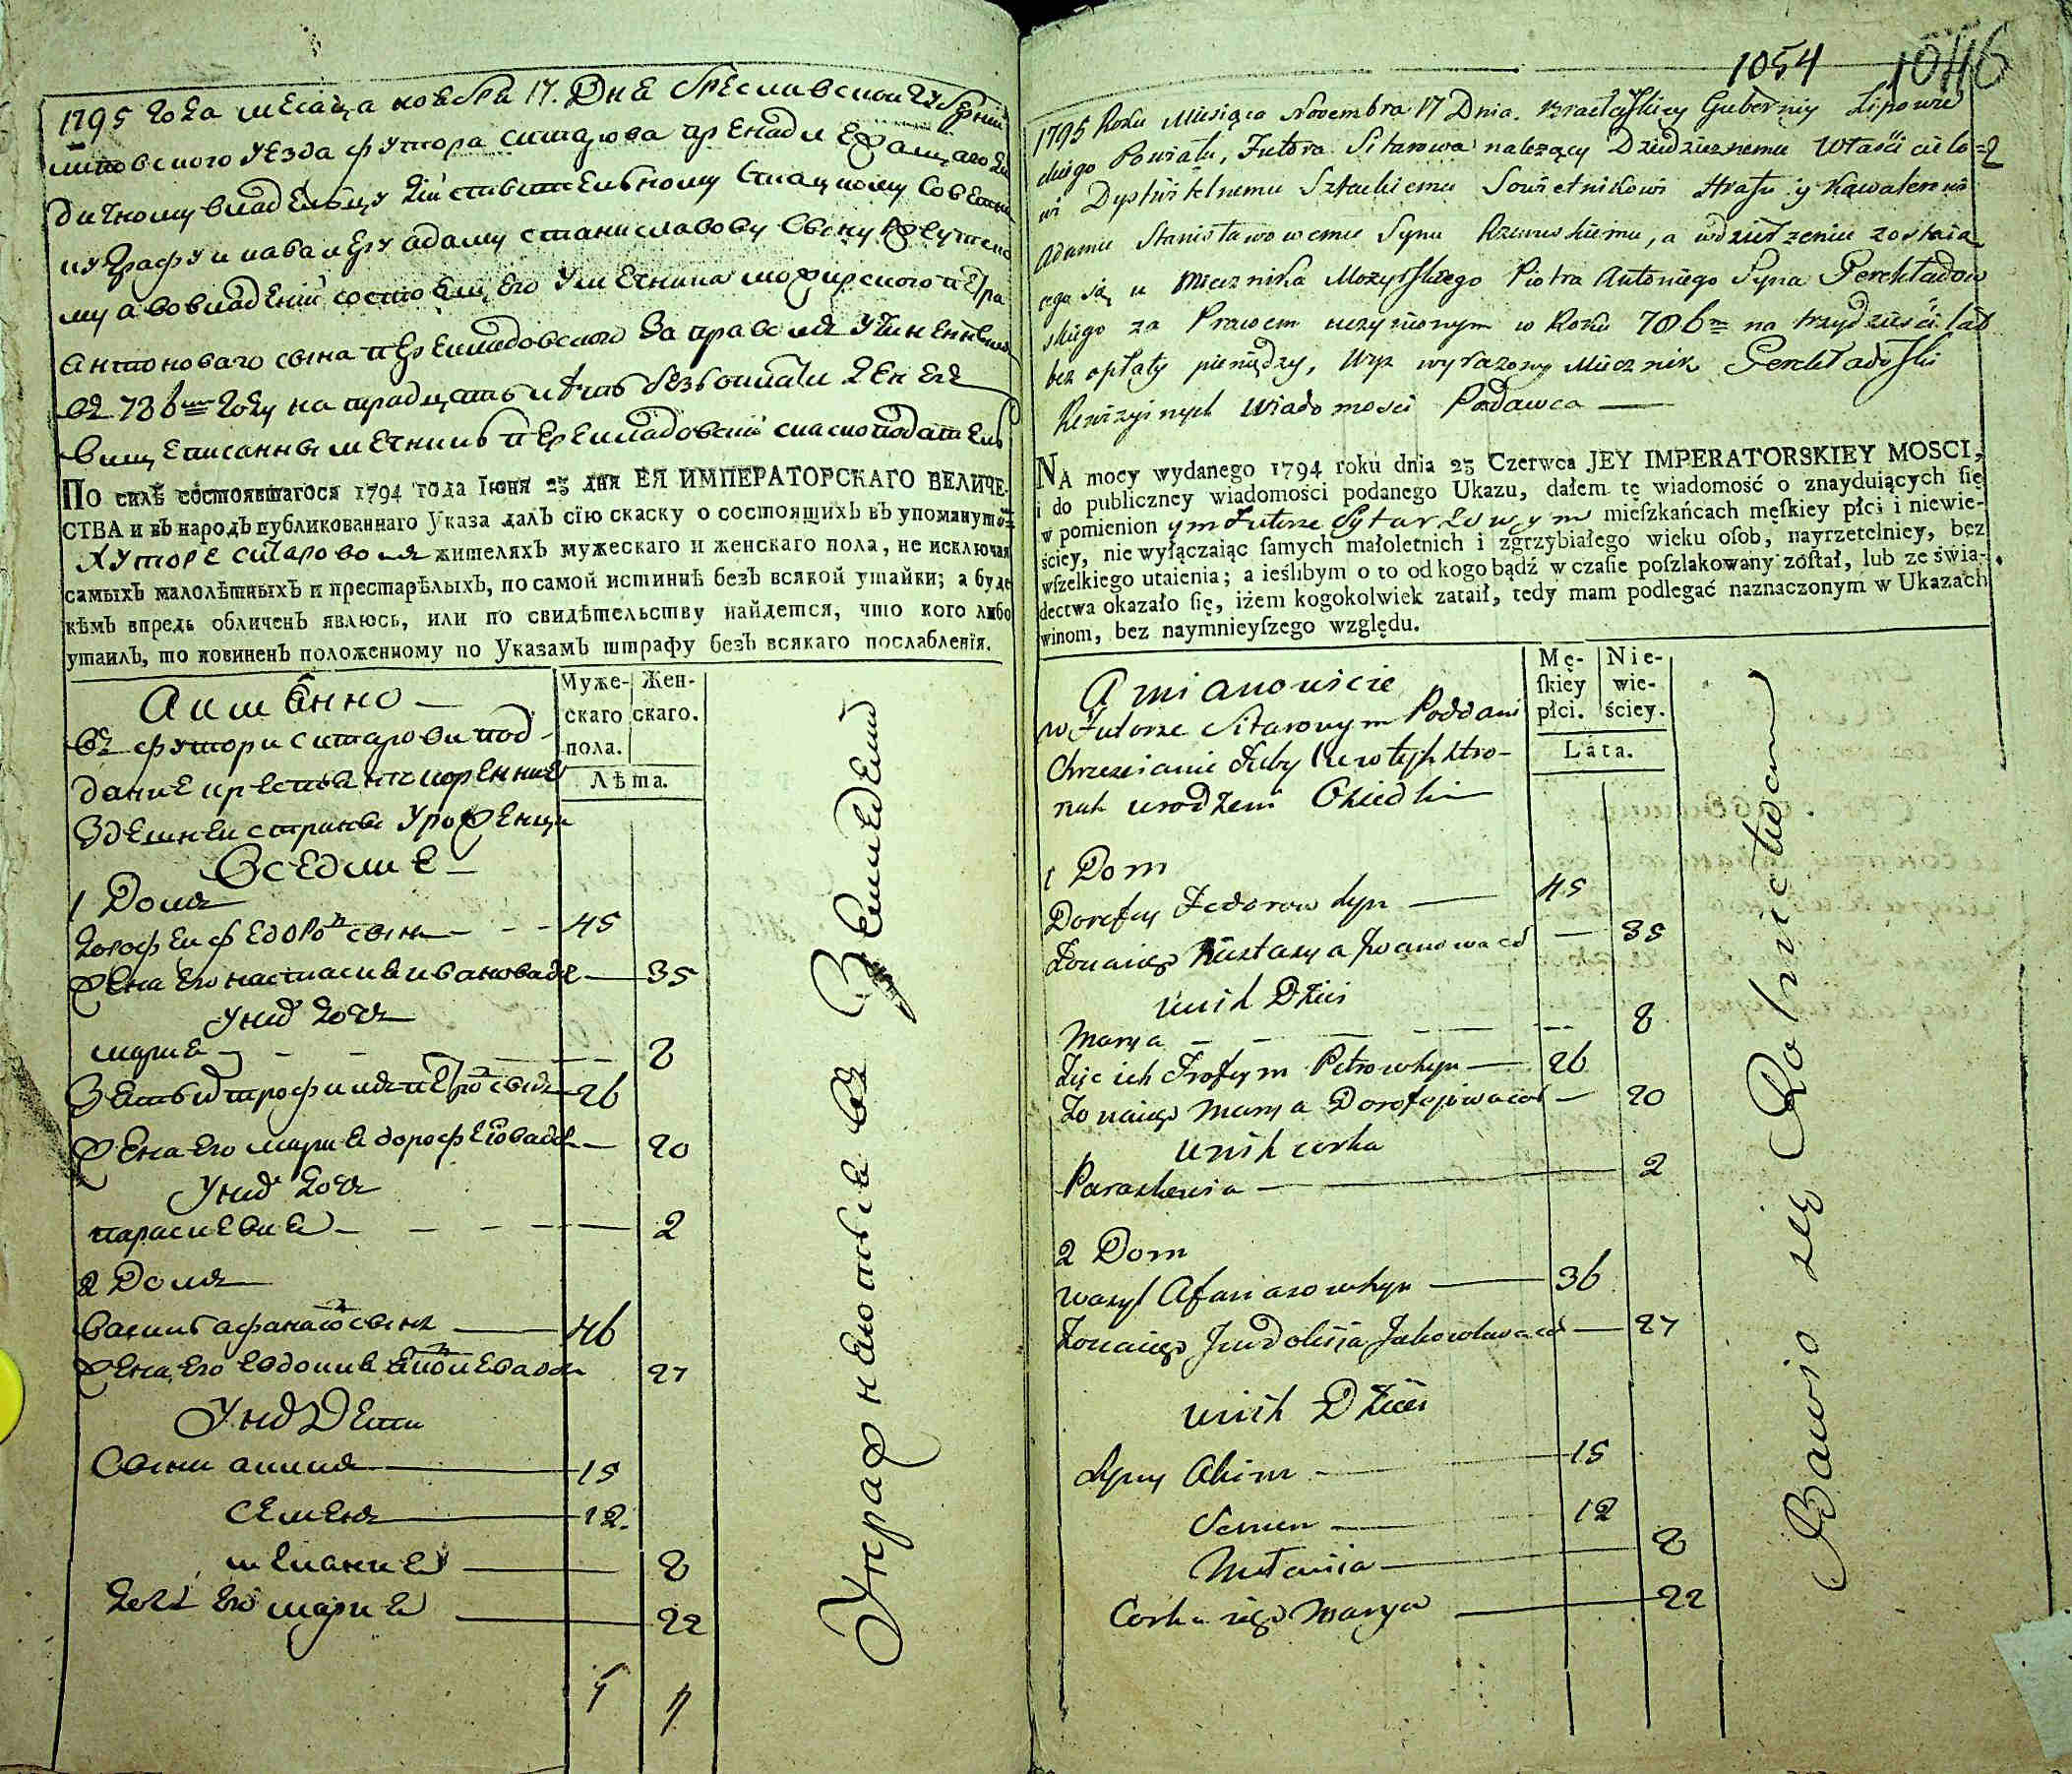 1795 года месаца новбра 17. Дня Бреславской губернии
липовского уезда футора ситарова пренадлежащаго на
дичному владельцу действительному статскому советни
ку графу и кавалеру адаму станиславову сыну ржевуцко
му а во владении состоящего у мечника можирского петра
антонового сына перекладовского за правомъ учиненнымъ
въ 786м году на традцать летъ без оплати денегъ
вишеписанны мечникъ перекладовский скаскоподатель
По силѣ состоявшагося 1794 года Iюня 23 дня ЕЯ ИМПЕРАТОРСКАГО ВЕЛИЧЕ-
СТВА и въ народъ публикованнаго Указа далъ сїю скаску о состоящихъ въ упомянуто
хуторе ситаровомъ жителяхъ мужескаго и женскаго пола, не исключая
самыхъ малолѣтныхъ и престарѣлыхъ, по самой истиннѣ безъ всякой утайки; а буде
кѣмъ впредь обличенъ явлюсь, или по свидѣтельству найдется, что кого либо
утаилъ, то повиненъ положенному по Указамъ штрафу безъ всякаго послабленїя.
А имянно
Муже-
скаго
пола.
Жен-
скаго.
Лѣта.
въ футори ситарови под
дание крестяне коренние
здешнеи страны уроженци
Оседлие
1 Домъ
Дорофеи федоровъ сынъ 45
жена его настасия иванова дочь 35
у них дочь
мария 8
зять их трофимъ петровъ сынъ 26
жена его мария дорофеева дочь 20
у них дочь
параскевия 2
2 Домъ
василь афанасовъ сынъ 46
жена его евдокия 27
у них дети
сыни акимъ 15
семенъ 12.
мелания 8
дочь его мария 22
5 9
Упражняються въ Земледелии
1054
1046
1795 Roku Miesiąca Novembra 17 Dnia. Bracławskiey Guberniy Lipowie
ckiego Powiatu, Futora Sitarowa należący Dziedzicznemu Właści cielo=
wi Dystwitelnemu Sztackiemu Sowietnikowi Hrafu y Kawalerowi
Adamu Stanisławowemu Synu Rzewuskiemu, a w dzierżeniu zostaia
cego się u Miecznika Mozyrskiego Piotra Antoniego Syna Perekładow
skiego za Prawem uczynionym w Roku 786m na trzydzieści lat
bez opłaty pieniędzy, wyz wyrażony Miecznik Perekładowski
Rewizyinych Wiadomości Podawca
NA mocy wydanego 1794 roku dnia 23 Czerwca JEY IMPERATORSKIEY MOSCI,
i do publiczney wiadomości podanego Ukazu, dałem tę wiadomość o znayduiących się
w pomienion ym Futorze Sytarzowym mieſzkańcach męſkiey płci i niewie-
ściey, nie wyłączaiąc ſamych małoletnich i zgrzybiałego wieku oſob, nayrzetelniey, bez
wſzelkiego utaienia; a ieślibym o to od kogo bądź w czaſie poſzlakowany zoſtał, lub ze świa-
dectwa okazało ſię, iżem kogokolwiek zataił, tedy mam podlegać naznaczonym w Ukazach
winom, bez naymnieyſzego względu.
A mianowicie
Mę-
ſkiey
płci.
Nie-
wie-
ściey.
Láta.
w Futorze Sitarowym Poddani
Chrzescianie
nach urodzeni Osiedli
1 Dom
Dorofey Fedorow syn 45
Żona iego Nastasya Iwanowa cór 35
u nich Dzieci
Marya 8
Zięć ich Trofym Petrow syn 26
Żona iego Marya Dorofejowa cór 20
u nich corka
Paraskewia 2
2 Dom
Wasyl Afanasow syn 36
Żona iego Jewdokija Jakowlowa cór 27
u nich Dzieci
Syny Akim 15
Semen 12
Mełania 8
Corka iego Marya 22
Bawio się Rolnictwem